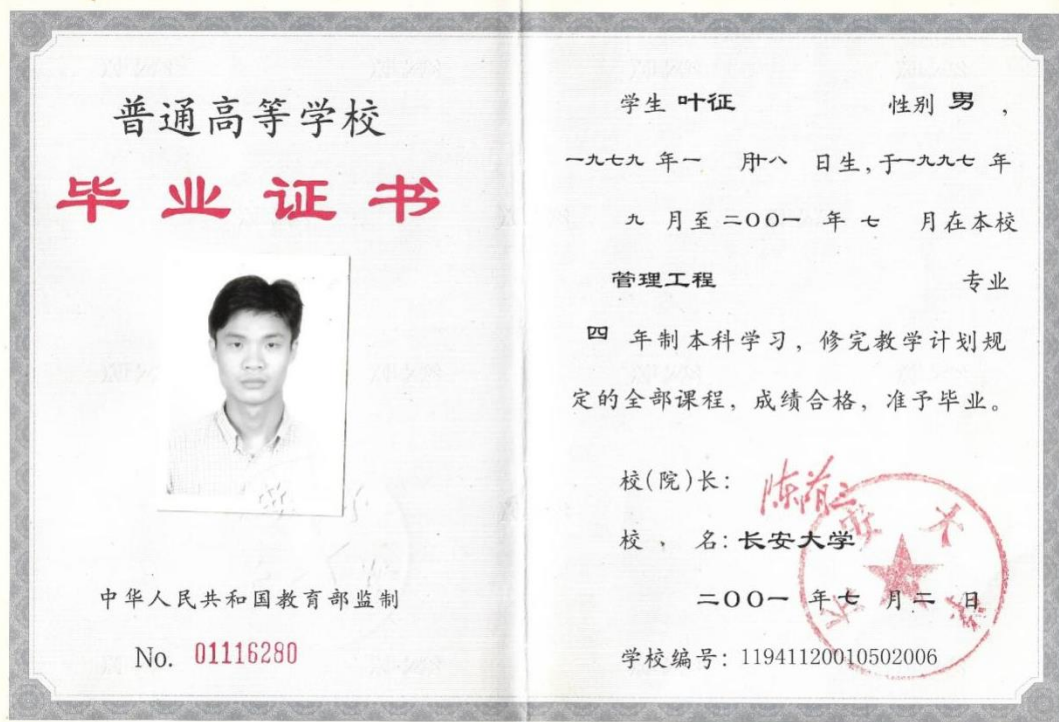 普通高等学校
毕业证书
中华人民共和国教育部监制
No. 01116280
学生 叶征 性别 男，
一九七九 年 一 月 十八 日生，于 一九九七 年
九 月至 二OO一 年 七 月在本校
管理工程 专业
四 年制本科学习，修完教学计划规
定的全部课程，成绩合格，准予毕业。
校(院)长：
校 、 名：长安大学
二OO一 年 七 月 二 日
学校编号：11941120010502006